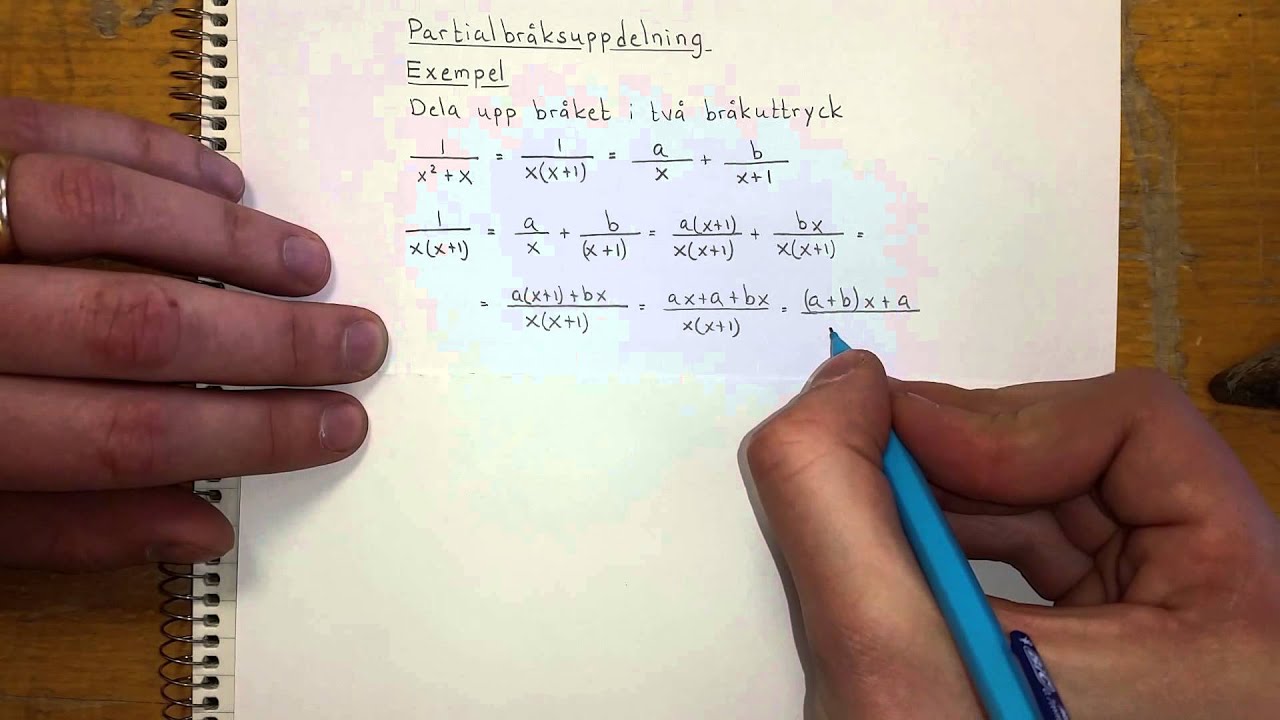 Partialbråksuppdelning
Exempel
Dela upp bråket i två bråkuttryck
1/(x²+x) = 1/(x(x+1)) = a/x + b/(x+1)
1/(x(x+1)) = a/x + b/(x+1) = a(x+1)/(x(x+1)) + bx/(x(x+1)) =
= (a(x+1)+bx)/(x(x+1)) = (ax+a+bx)/(x(x+1)) = (a+b)x+a